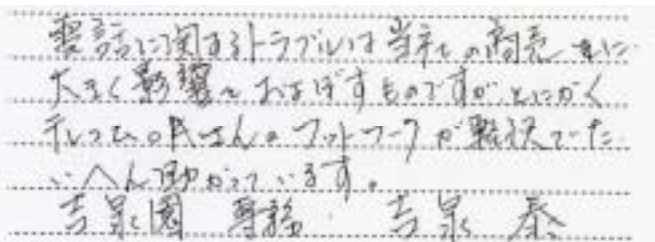 電話に関するトラブルは当社の商売 に
大きく影響をおよぼすものですが、とにかく
テレコムの さんのフットワークが軽快でた
いへん助かっています。
吉泉園 専務 吉泉 泰